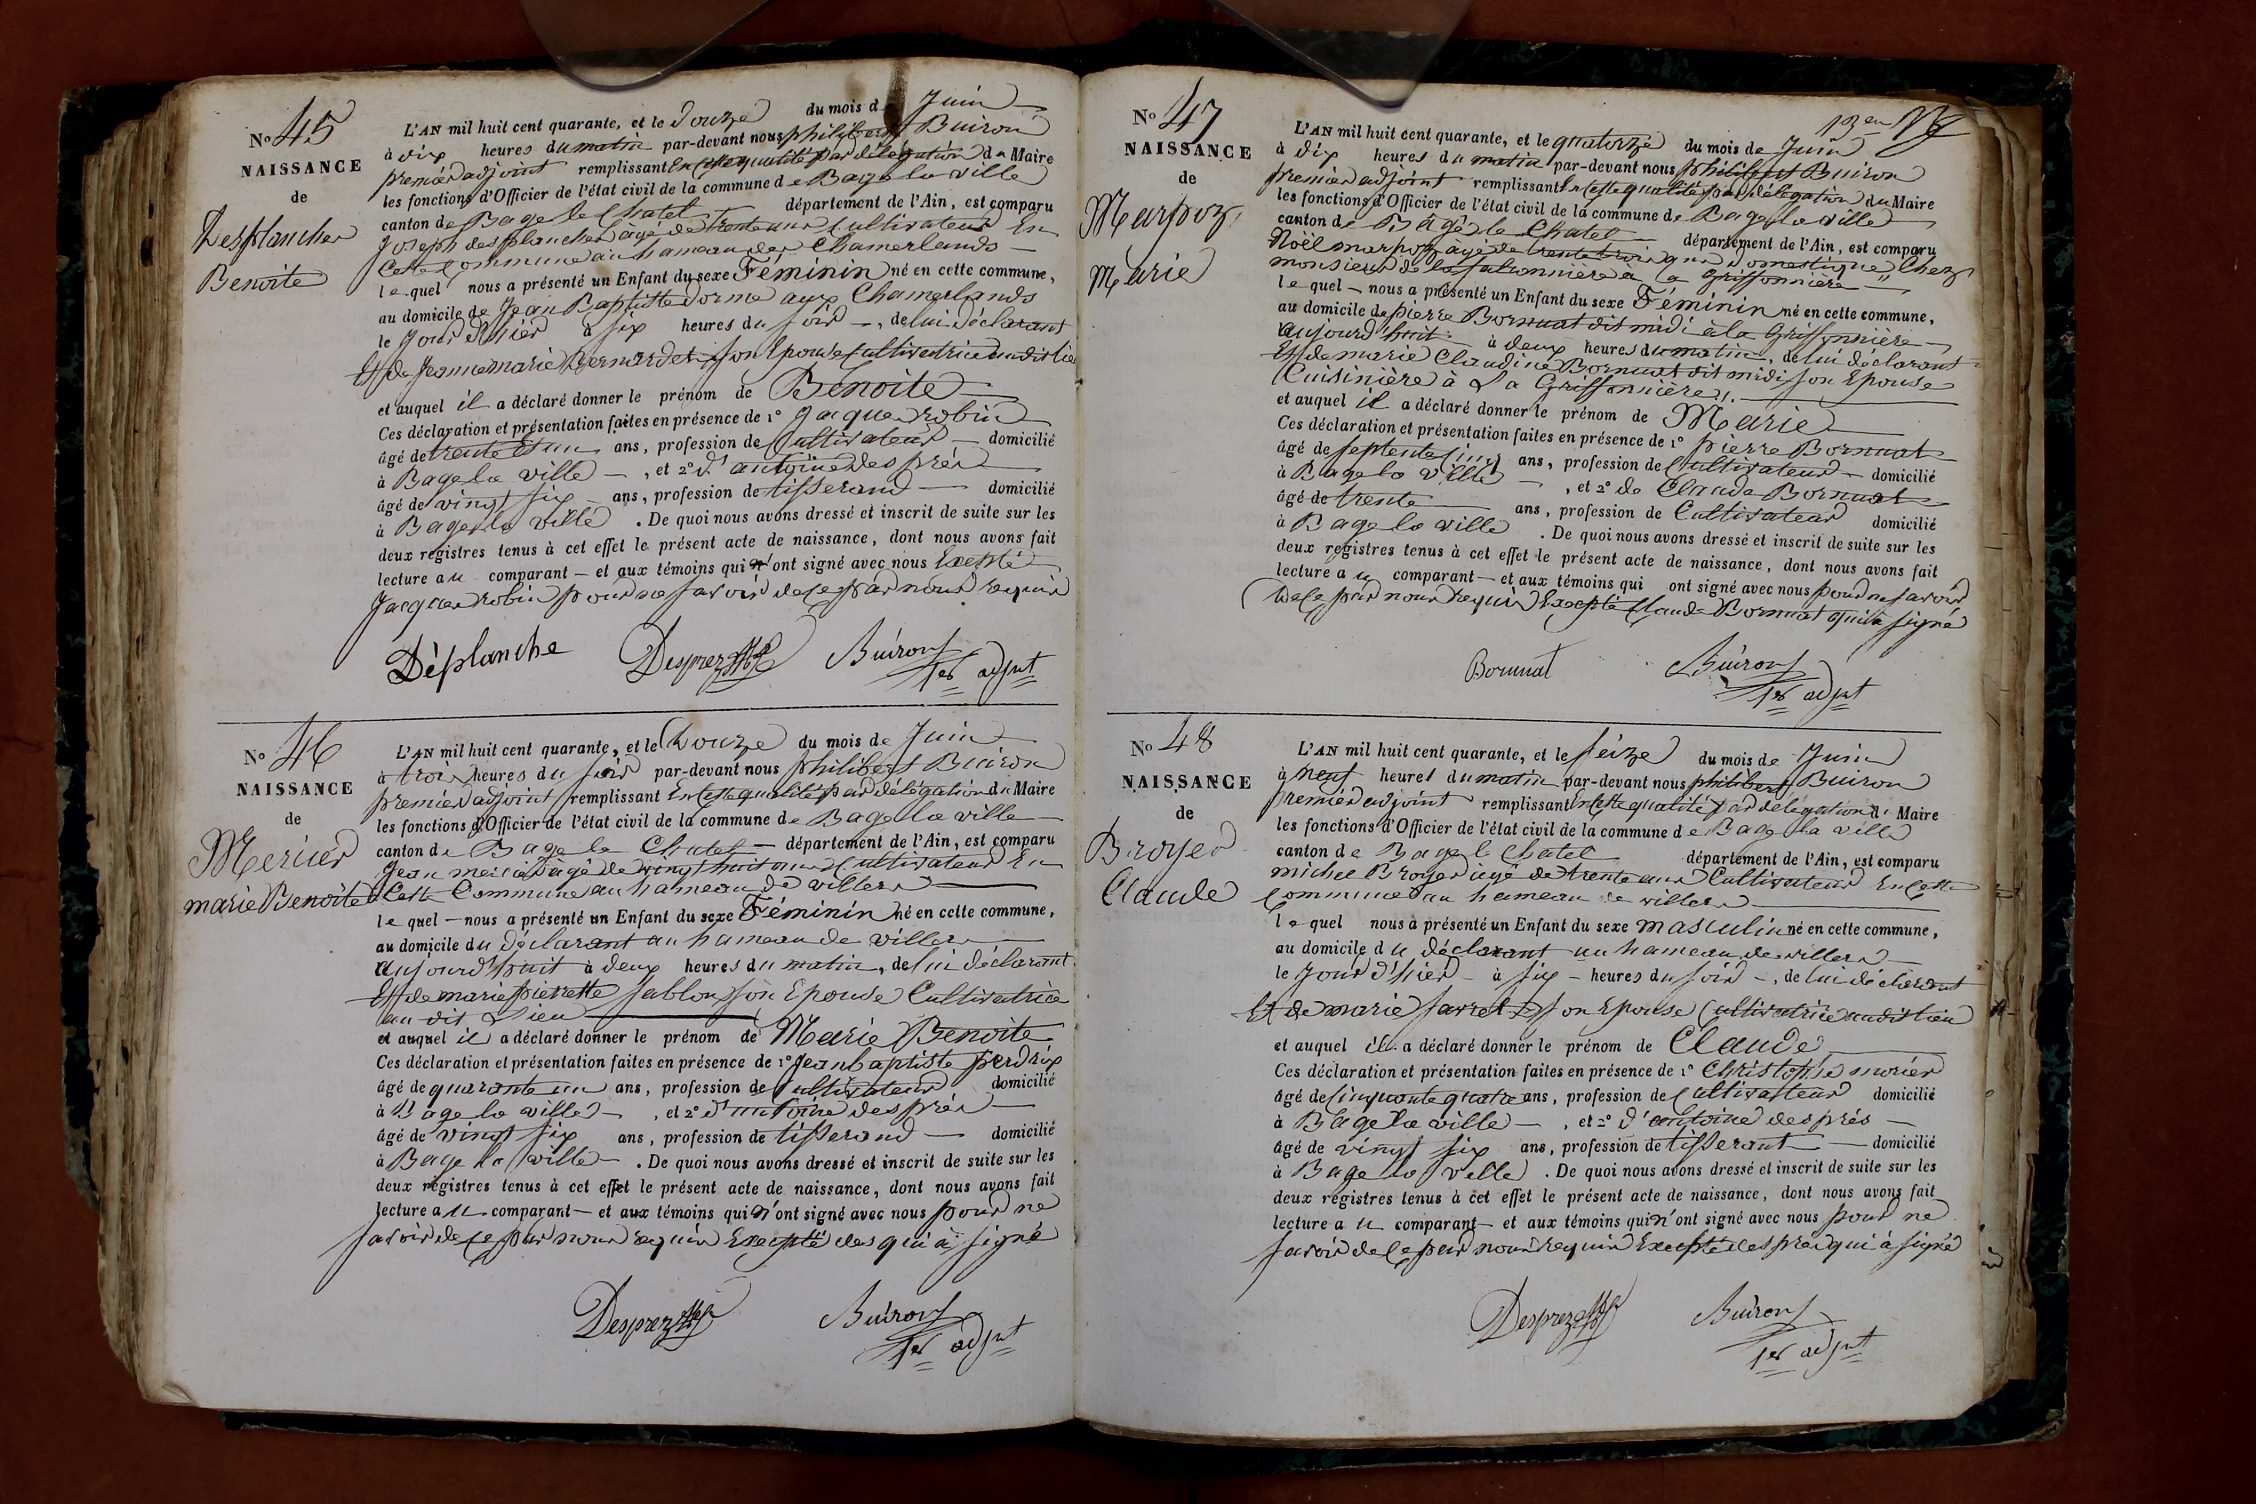 No 45
NAISSANCE
de
Desplanches
Benoite
L'AN mil huit cent quarante, et le Douze du mois de Juin
à dix heures du matin par-devant nous philibert Buiron
premier adjoint remplissant En cette qualité par délégation du Maire
les fonctions d'Officier de l'état civil de la commune de Bage la ville
canton de Bage le Chatel département de l'Ain, est comparu
Joseph desplanches âgé de trente ans Cultivateur En
Cette Commune au hameau des Chamerlands
lequel nous a présenté un Enfant du sexe Féminin né en cette commune,
au domicile de Jean Baptiste Dorme aux Chamerlands
le Jour d'hier à six heures du soir, de lui déclarant
Et de Jeanne marie Bernardet son Epouse Cultivatrice audit lieu
et auquel il a déclaré donner le prénom de Benoite
Ces déclaration et présentation faites en présence de 1° Jacques robin
âgé de trente Et un ans, profession de Cultivateur domicilié
à Bage la ville, et 2° d'antoine des prés
âgé de vingt six ans, profession de tisserand domicilié
à Bage la ville. De quoi nous avons dressé et inscrit de suite sur les
deux registres tenus à cet effet le présent acte de naissance, dont nous avons fait
lecture au comparant et aux témoins qui n'ont signé avec nous Excepté
Jacques robin pour ne savoir de ce par nous requis
Dèplanche Desprez Buiron
1er adjnt
No 46
NAISSANCE
de
Mericer
marie Benoite
L'AN mil huit cent quarante, et le Douze du mois de Juin
à trois heures du soir par-devant nous philibert Buiron
premier adjoint remplissant En cette qualité par délégation du Maire
les fonctions d'Officier de l'état civil de la commune de Bage la ville
canton de Bage le Chatel département de l'Ain, est comparu
Jean âgé de vingt huit ans Cultivateur En
Cette Commune au hameau de villers
lequel nous a présenté un Enfant du sexe Féminin né en cette commune,
au domicile du déclarant au hameau de villers
aujourd'huit à deux heures du matin, de lui déclarant
Et de marie pierrette Sablon son Epouse Cultivatrice
au dit Lieu
et auquel il a déclaré donner le prénom de Marie Benoite
Ces déclaration et présentation faites en présence de 1° Jean baptiste perdrix
âgé de quarante un ans, profession de Cultivateur domicilié
à Bage la ville, et 2° d'antoine des prés
âgé de vingt six ans, profession de tisserand domicilié
à Bage la ville. De quoi nous avons dressé et inscrit de suite sur les
deux registres tenus à cet effet le présent acte de naissance, dont nous avons fait
lecture au comparant et aux témoins qui n'ont signé avec nous pour ne
savoir de ce par nous requis Excepté des qui à signé
Desprez Buiron
1er adjnt
13eme
No 47
NAISSANCE
de
Marpoz
Marie
L'AN mil huit cent quarante, et le quatorze du mois de Juin
à dix heures du matin par-devant nous philibert Buiron
premier adjoint remplissant En cette qualité par délégation du Maire
les fonctions d'Officier de l'état civil de la commune de Bage la ville
canton de Bagé le Chatel département de l'Ain, est comparu
Noël marpoz âgé de trente trois ans Domestique Chez
monsieur de la à la Griffonnière
lequel nous a présenté un Enfant du sexe Féminin né en cette commune,
au domicile de pierre Bornuat dit midi à la Griffonnière
aujourd'huit à deux heures du matin, de lui déclarant
Et de marie Claudine Bornuat dit midi son Epouse
Cuisinière à La Griffonnière
et auquel il a déclaré donner le prénom de Marie
Ces déclaration et présentation faites en présence de 1° pierre Bornuat
âgé de septente cinq ans, profession de Cultivateur domicilié
à Bage la ville, et 2° de Claude Bornuat
âgé de trente ans, profession de Cultivateur domicilié
à Bage la ville. De quoi nous avons dressé et inscrit de suite sur les
deux registres tenus à cet effet le présent acte de naissance, dont nous avons fait
lecture au comparant et aux témoins qui ont signé avec nous pour ne savoir
de ce par nous requis Excepté Claude Bornuat qui a signé
Bornuat Buiron
1er adjnt
No 48
NAISSANCE
de
Broyer
Claude
L'AN mil huit cent quarante, et le seize du mois de Juin
à neuf heures du matin par-devant nous philibert Buiron
premier adjoint remplissant En cette qualité par délégation du Maire
les fonctions d'Officier de l'état civil de la commune de Bage la ville
canton de Bage le Chatel département de l'Ain, est comparu
michel Broyer âgé de trente ans Cultivateur En cette
Commune au hameau de villers
lequel nous a présenté un Enfant du sexe masculin né en cette commune,
au domicile du déclarant au hameau de villers
le Jour d'hier à six heures du soir, de lui déclarant
Et de marie favret son Epouse Cultivatrice audit lieu
et auquel il a déclaré donner le prénom de Claude
Ces déclaration et présentation faites en présence de 1° Christophe morier
âgé de cinquante quatre ans, profession de Cultivateur domicilié
à Bage la ville, et 2° d'antoine des prés
âgé de vingt six ans, profession de tisserant domicilié
à Bage la ville. De quoi nous avons dressé et inscrit de suite sur les
deux registres tenus à cet effet le présent acte de naissance, dont nous avons fait
lecture au comparant et aux témoins qui n'ont signé avec nous pour ne
savoir de ce par nous requis Excepté desprez qui à signé
Desprez Buiron
1er adjnt